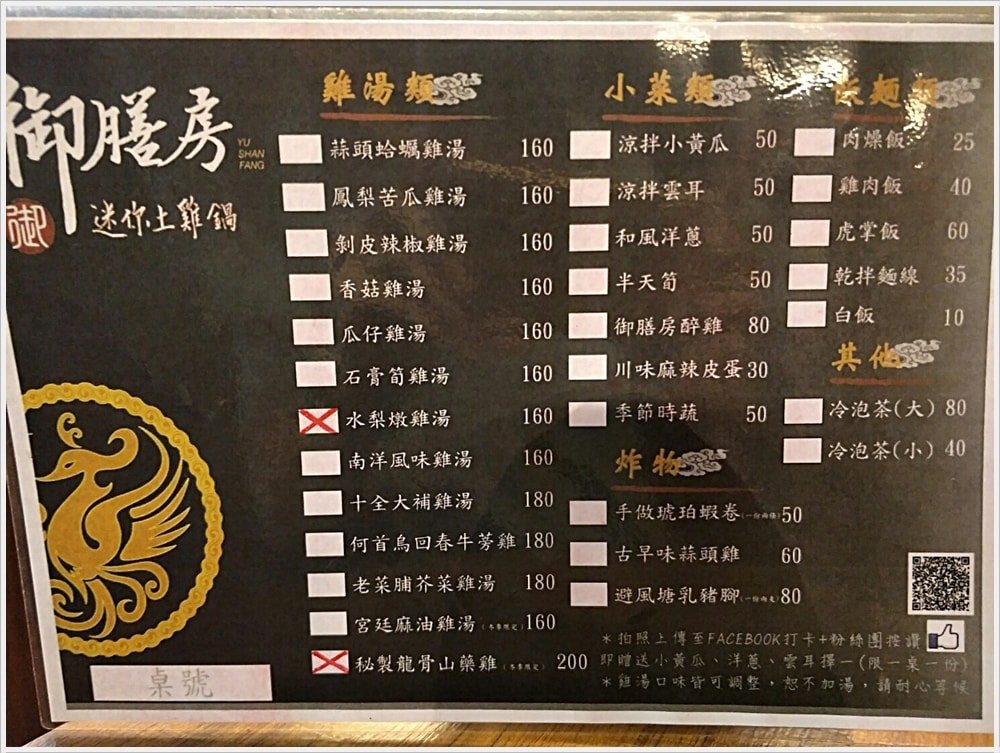 御膳房
YU
SHAN
FANG
御
迷你土雞鍋
雞湯類
蒜頭蛤蠣雞湯 160
鳳梨苦瓜雞湯 160
剝皮辣椒雞湯 160
香菇雞湯 160
瓜仔雞湯 160
石膏筍雞湯 160
水梨燉雞湯 160
南洋風味雞湯 160
十全大補雞湯 180
何首烏回春牛蒡雞 180
老菜脯芥菜雞湯 180
宮廷麻油雞湯(冬季限定) 160
秘製龍骨山藥雞(冬季限定) 200
小菜類
涼拌小黃瓜 50
涼拌雲耳 50
和風洋蔥 50
半天筍 50
御膳房醉雞 80
川味麻辣皮蛋 30
季節時蔬 50
炸物
手做琥珀蝦卷(一份兩條) 50
古早味蒜頭雞 60
避風塘乳豬腳(一份兩支) 80
飯麵類
肉燥飯 25
雞肉飯 40
虎掌飯 60
乾拌麵線 35
白飯 10
其他
冷泡茶(大) 80
冷泡茶(小) 40
*拍照上傳至FACEBOOK打卡+粉絲團按讚
即贈送小黃瓜、洋蔥、雲耳擇一(限一桌一份)
*雞湯口味皆可調整，恕不加湯，請耐心等候
桌號